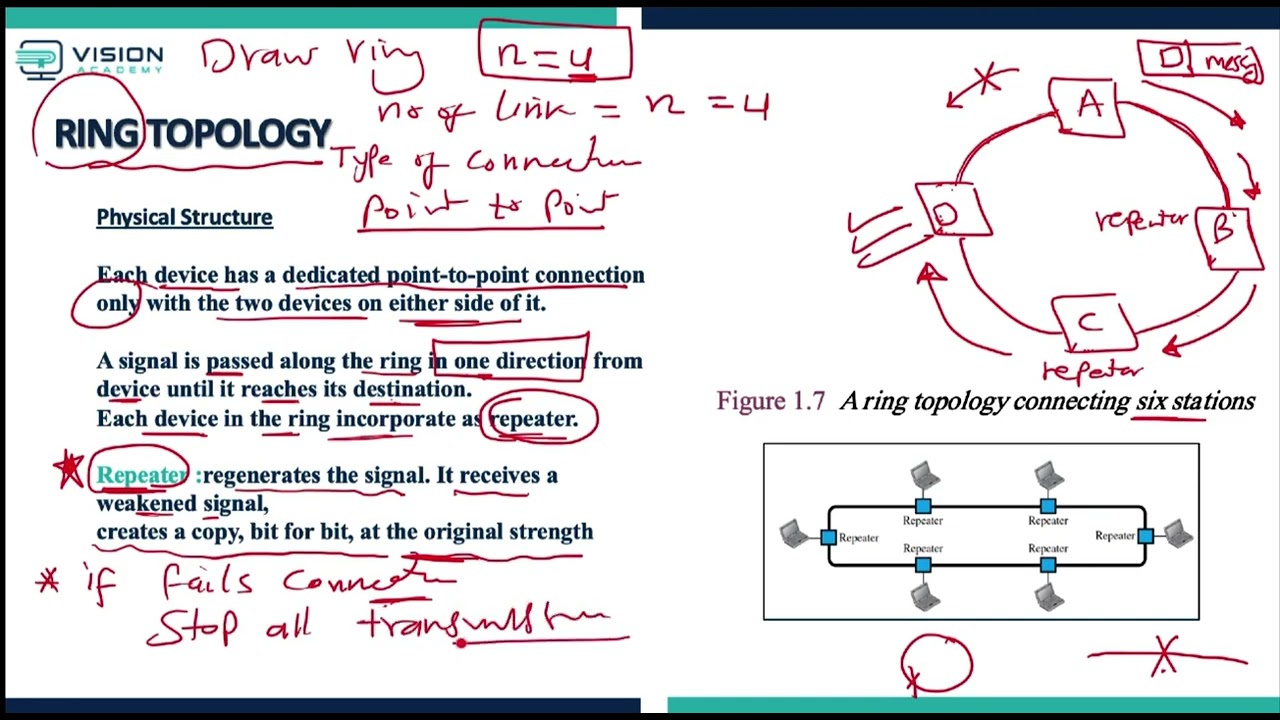 VISION
ACADEMY
Draw ring
n=4
no of link = n = 4
RING TOPOLOGY
Type of connection
Point to Point
Physical Structure
Each device has a dedicated point-to-point connection
only with the two devices on either side of it.
A signal is passed along the ring in one direction from
device until it reaches its destination.
Each device in the ring incorporate as repeater.
Repeater :regenerates the signal. It receives a
weakened signal,
creates a copy, bit for bit, at the original strength
* if fails connection
Stop all transmission
D
A
D
repeater
B
C
repeator
Figure 1.7 A ring topology connecting six stations
Repeater
Repeater
Repeater
Repeater
Repeater
Repeater